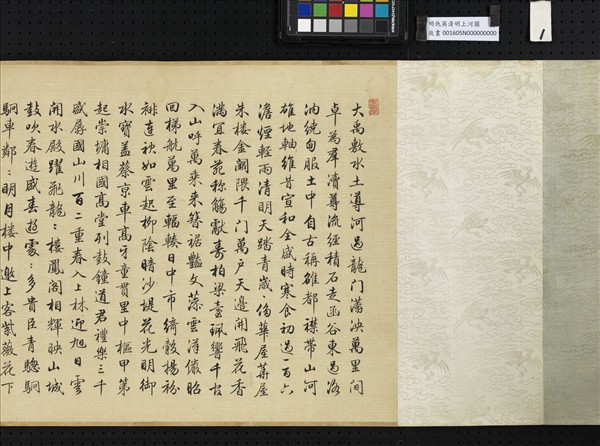 明仇英清明上河圖
故畫 001605N000000000
大禹敷水土導河過龍門蕩泱萬里間
卓為群瀆尊流經積石走函谷東過洛
汭統甸服土中自古稱雄都襟帶山河
雄地軸維昔宣和全盛時寒食初過一百六
澹煙輕雨清明天踏青歲〻傷華屋華屋
朱樓金闕隈千門萬戶天邊開飛花香
滿宜春苑稱觴獻壽柏梁臺珮響千官
入山呼萬乘來簪裾豔文藻雲漢儼昭
回梯航萬里至輻輳日中市綺縠楊衯
連袂如雲起柳陰暗沙堤花光明御
水寶蓋蔡京車高牙童貫里中樞甲第
起崇墉相國高堂列鼓鐘道君禮樂三千
盛孱國山川百二重春入上林迎旭日雲
開水殿躍飛龍〻樓鳳閣相輝映山城
鼓吹春遊盛春遊處〻多貴臣青驄駟
駟車鄰〻明月樓中邀上客紫薇花下